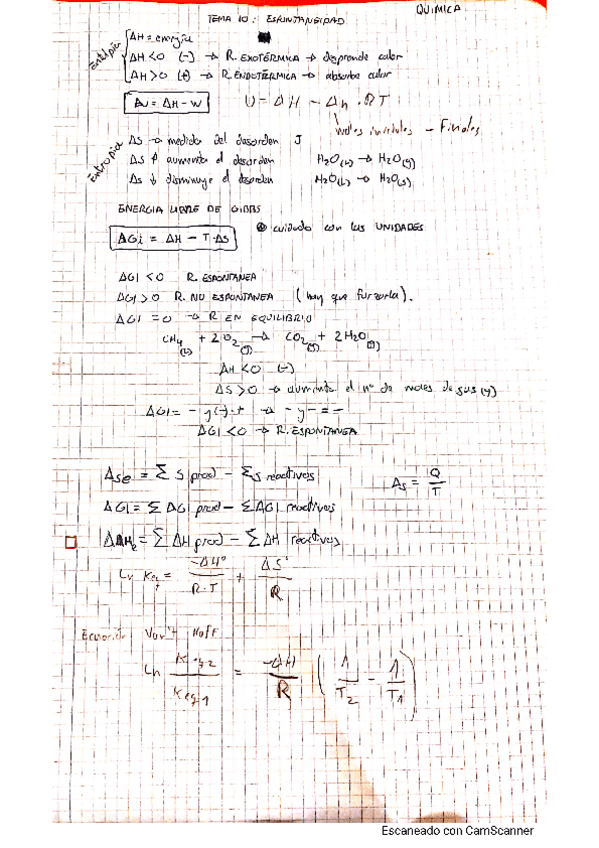 QUIMICA
TEMA 10: ESPONTANEIDAD
Entalpia
ΔH = energia
ΔH < 0 (-) → R. EXOTÉRMICA → desprende calor
ΔH > 0 (+) → R. ENDOTÉRMICA → absorbe calor
ΔU = ΔH - W U = ΔH - Δn · RT
moles iniciales - Finales
Entropia
ΔS → medida del desorden J
ΔS ↑ aumenta el desorden H2O(L) → H2O(g)
ΔS ↓ disminuye el desorden H2O(L) → H2O(s)
ENERGIA LIBRE DE GIBBS
ΔG = ΔH - T·ΔS cuidado con las UNIDADES
ΔG < 0 R. ESPONTANEA
ΔG > 0 R. NO ESPONTANEA (hay que forzarla).
ΔG = 0 → R EN EQUILIBRIO
CH4 + 2O2(g) → CO2(g) + 2H2O(g)
ΔH < 0 (-)
ΔS > 0 → aumenta el nº de moles de gas (g)
ΔG = - y(-)·+ → - y - = -
ΔG < 0 → R. ESPONTANEA
ΔSe = Σ S prod - Σ S reactivos ΔS = Q/T
ΔG = Σ ΔG prod - Σ ΔG reactivos
ΔHe = Σ ΔH prod - Σ ΔH reactivos
Ln Keq = -ΔH°/R·T + ΔS°/R
Ecuación Van't Hoff
Ln Keq2/Keq1 = -ΔH/R (1/T2 - 1/T1)
Escaneado con CamScanner